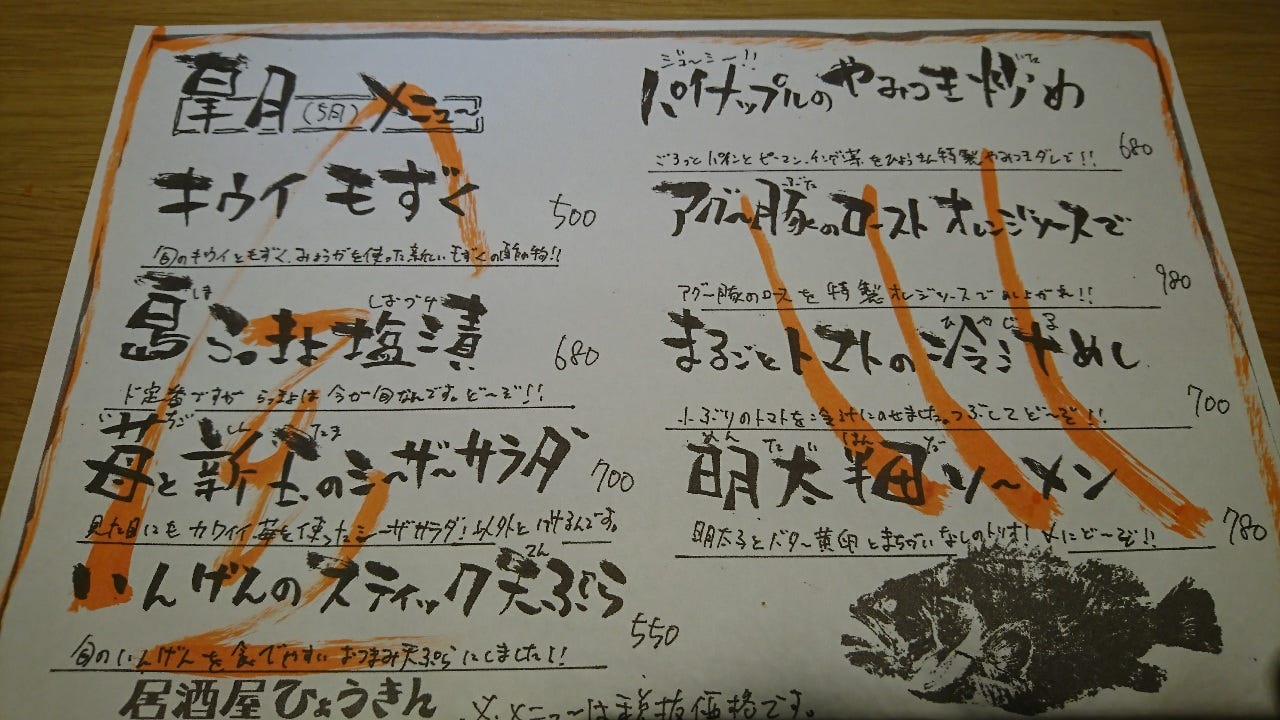 皐月(5月)メニュー
キウイもずく 500
旬のキウイともずく、みょうがを使った新しいもずくの酢の物!!
島らっきょ塩漬 680
しま しおづけ
ド定番ですが らっきょは 今が旬なんです。ど〜ぞ!!
苺と新玉のシーザーサラダ 700
いちご しん たま
見た目にもカワイイ苺を使ったシーザサラダ!以外とイケるんです。
いんげんのスティック天ぷら 550
てん
旬のいんげんを食べやすいおつまみ天ぷらにしました!!
居酒屋ひょうきん
※メニューは税抜価格です。
ジューシー!!
パイナップルのやみつき炒め 680
いた
ごろっとパインとピーマン、インゲン
特製やみつきダレで!!
アグー豚のロースト オレンジソースで 980
ぶた
アグー豚のロースを特製オレンジソースでめしあがれ!!
まるごとトマトの冷汁めし 700
ひやじる
小ぶりのトマトを冷汁にのせました。つぶしてど〜ぞ!!
明太半田ソーメン 780
めん たい はん だ
明太子とバター黄卵とまちがいなしのトリオ!〆にど〜ぞ!!